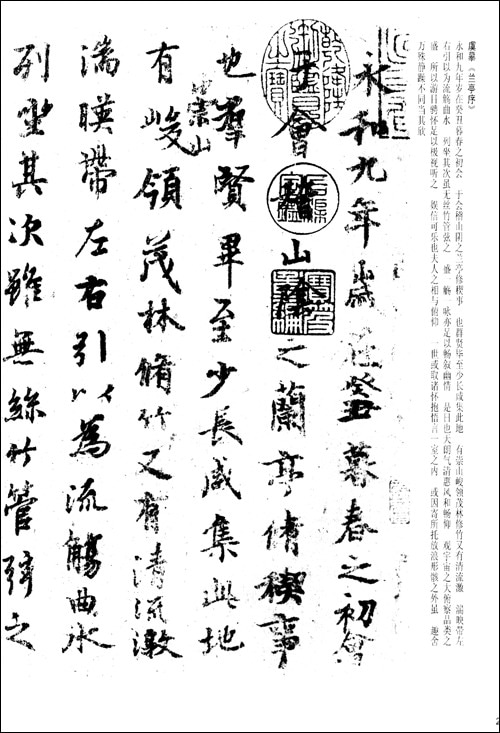 虞摹《兰亭序》
永和九年岁在癸丑暮春之初会 于会稽山阴之兰亭修稧事 也群贤毕至少长咸集此地 有崇山峻领茂林修竹又有清流激 湍映带左
右引以为流觞曲水 列坐其次虽无丝竹管弦之 盛 觞 咏亦足以畅叙幽情 是日也天朗气清惠风和畅仰 观宇宙之大俯察品类之
盛 所以游目骋怀足以极视听之 娱信可乐也夫人之相与俯仰 一世或取诸怀抱悟言一室之内 或因寄所托放浪形骸之外虽 趣舍
万殊静躁不同当其欣
永和九年歲在癸丑暮春之初會
于會稽山陰之蘭亭脩稧事
也羣賢畢至少長咸集此地
有崇山峻領茂林脩竹又有清流激
湍暎帶左右引以為流觴曲水
列坐其次雖無絲竹管弦之